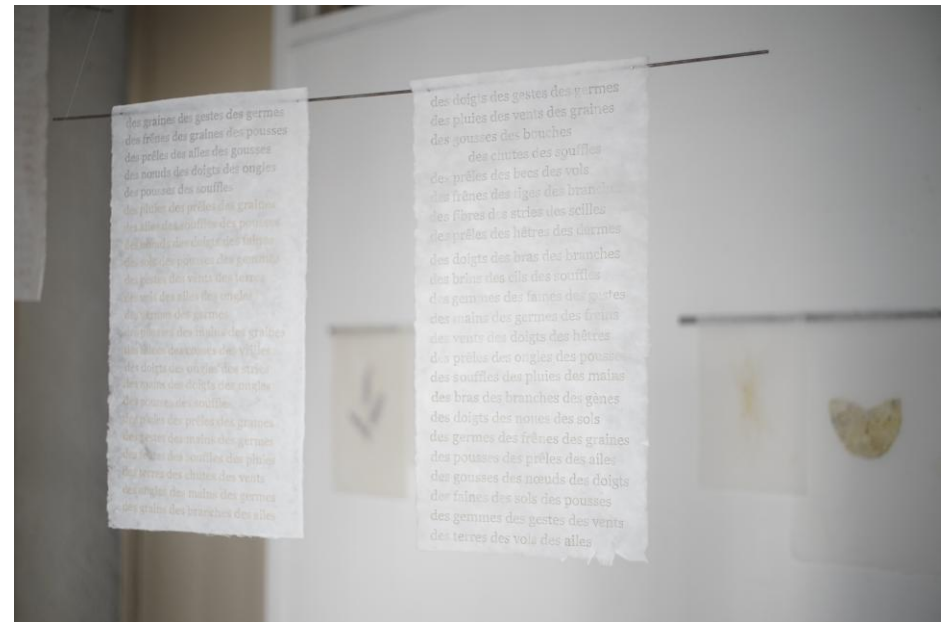 des graines des gestes des germes
des frênes des graines des pousses
des prêles des ailes des gousses
des nœuds des doigts des ongles
des pousses des souffles
des prêles des graines
des souffles des pousses
des doigts des faines
des pousses des gemmes
des vents des terres
des sols des ailes des ongles
des germes
des mains des graines
des vrilles
des doigts des stries
des mains des doigts des
des souffles
des pluies des prêles des graines
des mains des germes
des souffles des pluies
des terres des chutes des vents
des ongles des mains des germes
des grains des branches des ailes
des doigts des gestes des germes
des pluies des vents des graines
des gousses des bouches
des chutes des souffles
des prêles des becs des vols
des frênes des tiges des branches
des fibres des stries des scilles
des prêles des hêtres des dermes
des doigts des bras des branches
des brins des cils des souffles
des gemmes des faines des gestes
des mains des germes des freins
des vents des doigts des hêtres
des prêles des ongles des pousses
des souffles des pluies des mains
des bras des branches des gènes
des doigts des noues des sols
des germes des frênes des graines
des pousses des prêles des ailes
des gousses des nœuds des doigts
des faines des sols des pousses
des gemmes des gestes des vents
des terres des vols des alles